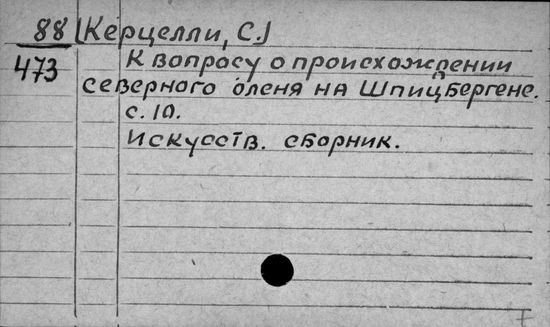 88 (Керцелли, С.)
473 К вопросу о происхождении
северного оленя на Шпицбергене.
с. 10.
Искусств. сборник.